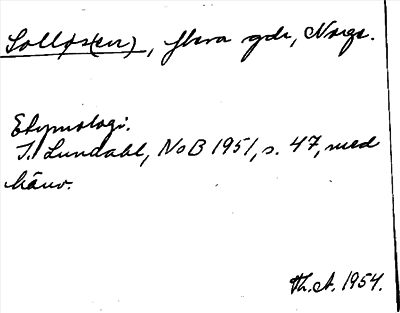 Solløs(en), flera gdr, Norge.
Etymologi.
I. Lundahl, NoB 1951, s. 47, med
hänv.
Th. A. 1954.